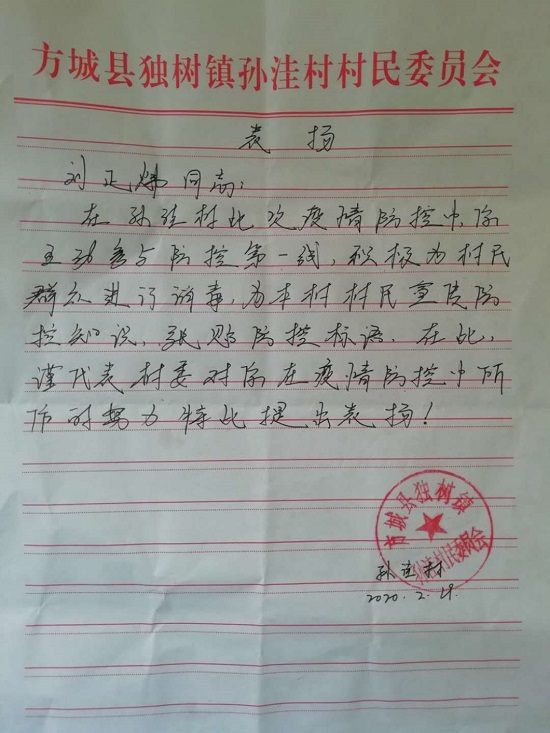 方城县独树镇孙洼村村民委员会
表扬
刘正 同志:
在孙洼村此次疫情防控中,你
主动参与防控第一线,积极为村民
群众进行消毒,为本村村民宣传防
控知识,张贴防控标语.在此,
谨代表村委对你在疫情防控中所
作的努力特此提出表扬!
方城县独树镇
孙洼村村民委员会
孙洼村
2020.2.